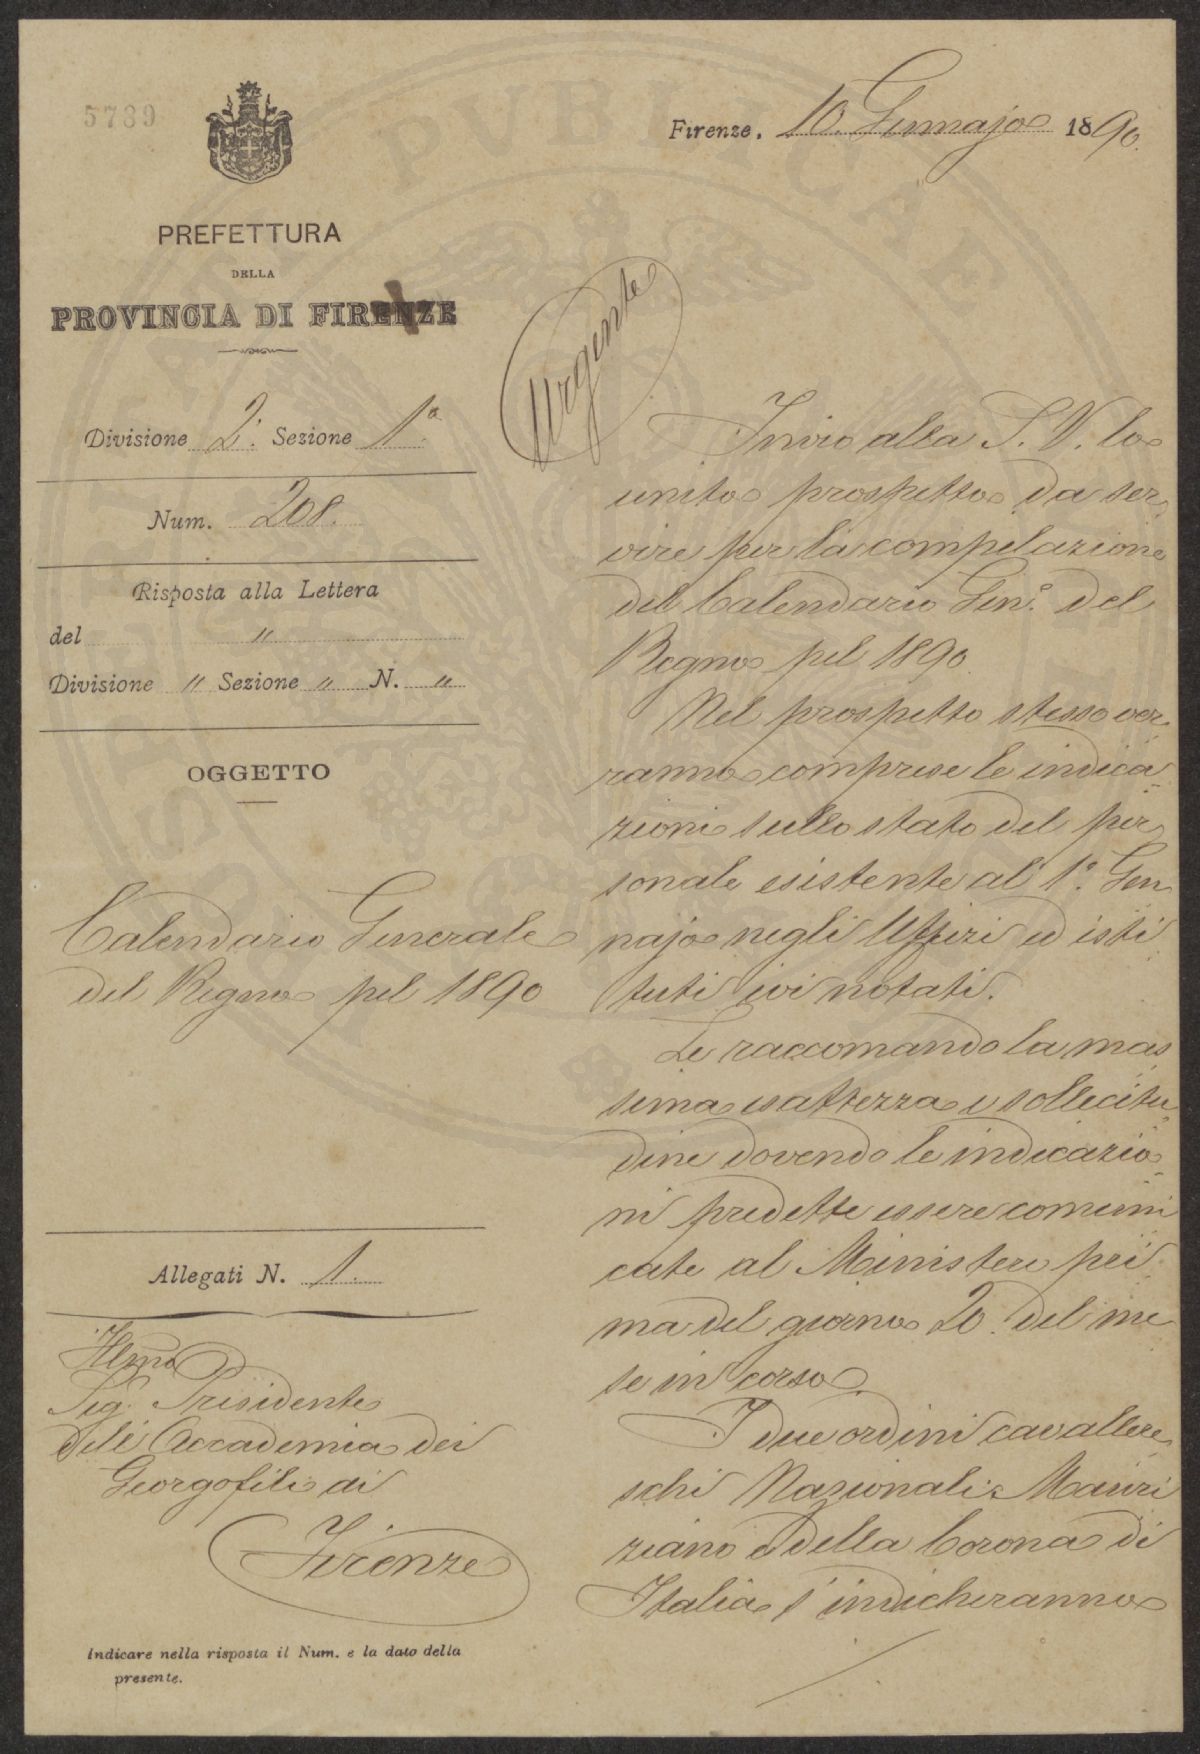 5789
Firenze, 10. Gennajo 1890.
PREFETTURA
DELLA
PROVINCIA DI FIRENZE
Urgente
Divisione 2ª. Sezione 1ª.
Num. 208.
Risposta alla Lettera
del "
Divisione " Sezione " N. "
OGGETTO
Calendario Generale
del Regno pel 1890
Allegati N. 1.
Illmo
Sig. Presidente
dell' Accademia dei
Georgofili di
Firenze
Indicare nella risposta il Num. e la dato della
presente.
Invio alla S. V. lo
unito prospetto da ser
vire per la compilazione
del Calendario Gen.° del
Regno pel 1890
Nel prospetto stesso ver
ranno comprese le indica
zioni sullo stato del per
sonale esistente al 1°. Gen
najo negli Uffizi ed isti
tuti ivi notati.
Le raccomando la mas
sima esattezza e sollecitu
dine dovendo le indicazio
ni predette essere comuni
cate al Ministero pri
ma del giorno 20. del me
se in corso.
I due ordini cavallere
schi Nazionali: Mauri
ziano e della Corona di
Italia s'indicheranno